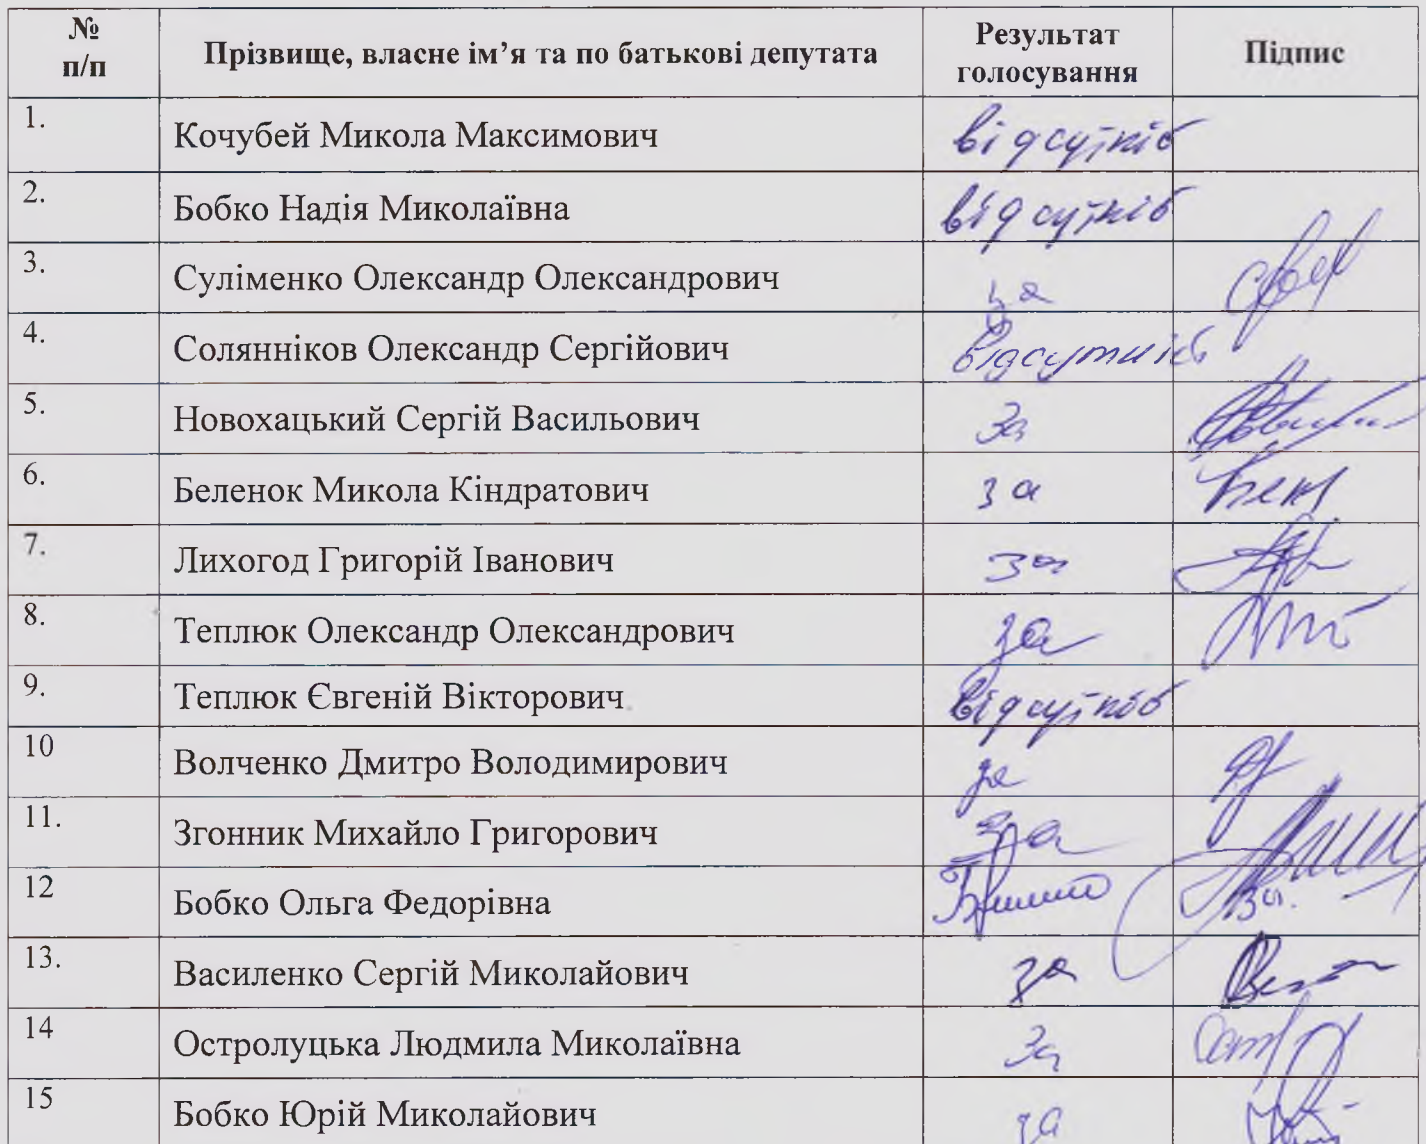 № п/п Прізвище, власне ім’я та по батькові депутата Результат голосування Підпис
1. Кочубей Микола Максимович відсутній
2. Бобко Надія Миколаївна відсутній
3. Суліменко Олександр Олександрович за
4. Солянніков Олександр Сергійович відсутній
5. Новохацький Сергій Васильович За
6. Беленок Микола Кіндратович за
7. Лихогод Григорій Іванович за
8. Теплюк Олександр Олександрович за
9. Теплюк Євгеній Вікторович відсутній
10 Волченко Дмитро Володимирович за
11. Згонник Михайло Григорович за
12 Бобко Ольга Федорівна за.
13. Василенко Сергій Миколайович за
14 Остролуцька Людмила Миколаївна За
15 Бобко Юрій Миколайович за